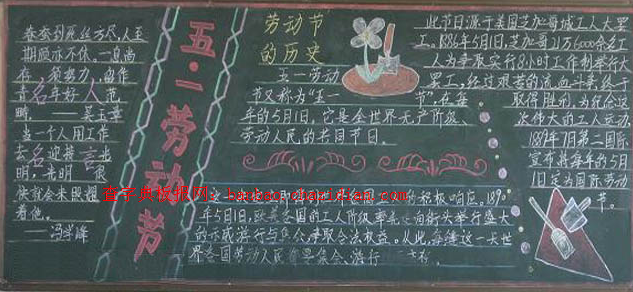 春蚕到死丝方尽,人至
期颐亦不休。一息尚
存,须努力,留作
青年好范
畴。——吴玉章
当一个人用工作
去迎接
光明,光明很
快就会来照耀
着他。
——冯学峰
五·一劳动节
劳动节
的历史
五一劳动
节又称为"五一
节",在每
年的5月1日。它是全世界无产阶级、
劳动人民的共同节日。
此节日源于美国芝加哥城工人大罢
工。1886年5月1日,芝加哥21万6000余名工
人为争取实行8小时工作制举行大
罢工,经过艰苦的流血斗争,终于
取得胜利。为纪念这
次伟大的工人运动,
1889年7月第二国际
宣布将每年的5月
1日定为国际劳动
节。
查字典板报网:banbao.chazidian.com
的积极响应。1890
年5月1日,欧美各国的工人阶级率先走向街头,举行盛大
的示威游行与集会,争取合法权益。从此,每逢这一天世
界各国劳动人民都要集会、游行